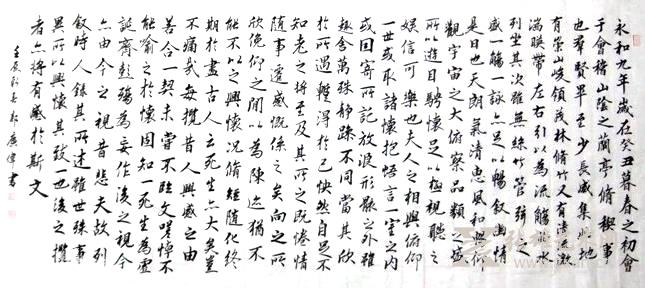 永和九年歲在癸丑暮春之初會
于會稽山陰之蘭亭脩稧事
也羣賢畢至少長咸集此地
有崇山峻領茂林脩竹又有清流激
湍暎帶左右引以為流觴曲水
列坐其次雖無絲竹管弦之
盛一觴一詠亦足以暢敘幽情
是日也天朗氣清惠風和暢仰
觀宇宙之大俯察品類之盛
所以遊目騁懷足以極視聽之
娛信可樂也夫人之相與俯仰
一世或取諸懷抱悟言一室之內
或因寄所託放浪形骸之外雖
趣舍萬殊靜躁不同當其欣
於所遇暫得於己怏然自足不
知老之將至及其所之既惓情
隨事遷感慨係之矣向之所
欣俛仰之間以為陳迹猶不
能不以之興懷況脩短隨化終
期於盡古人云死生亦大矣豈
不痛哉每攬昔人興感之由
若合一契未嘗不臨文嗟悼不
能喻之於懷固知一死生為虛
誕齊彭殤為妄作後之視今
亦由今之視昔悲夫故列
敘時人錄其所述雖世殊事
異所以興懷其致一也後之攬
者亦將有感於斯文
壬辰